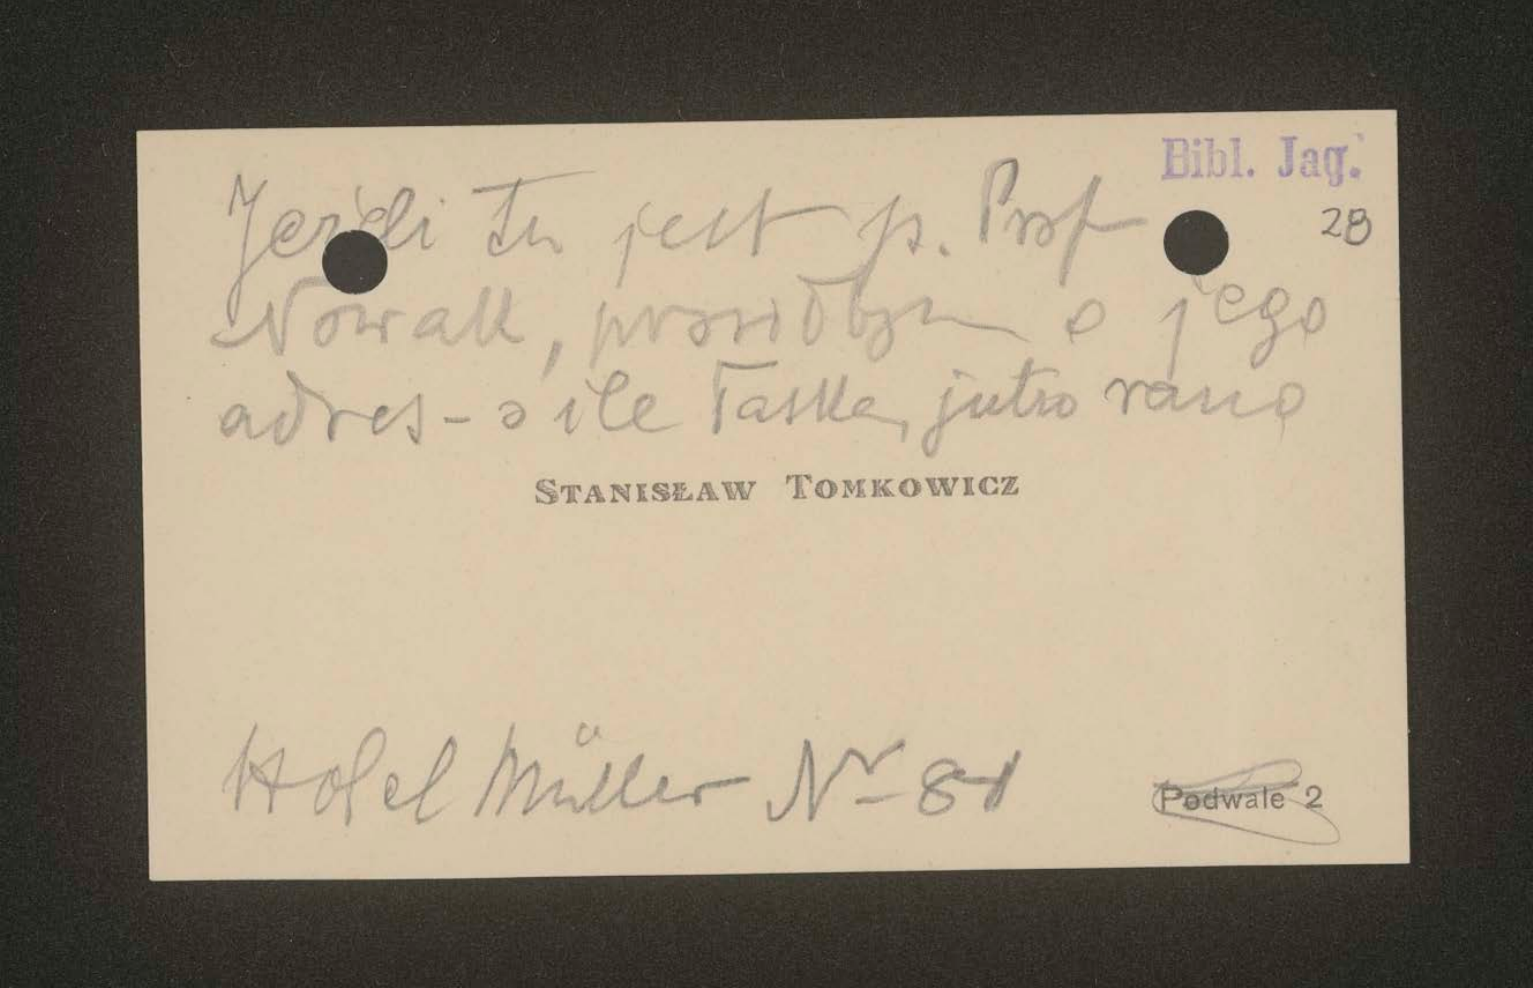 Bibl. Jag.
28
Jeżeli tu jest p. Prof
Nowak, prosiłbym o jego
adres - o ile łaska, jutro rano
STANISŁAW TOMKOWICZ
Hotel Müller Nr 81
Podwale 2